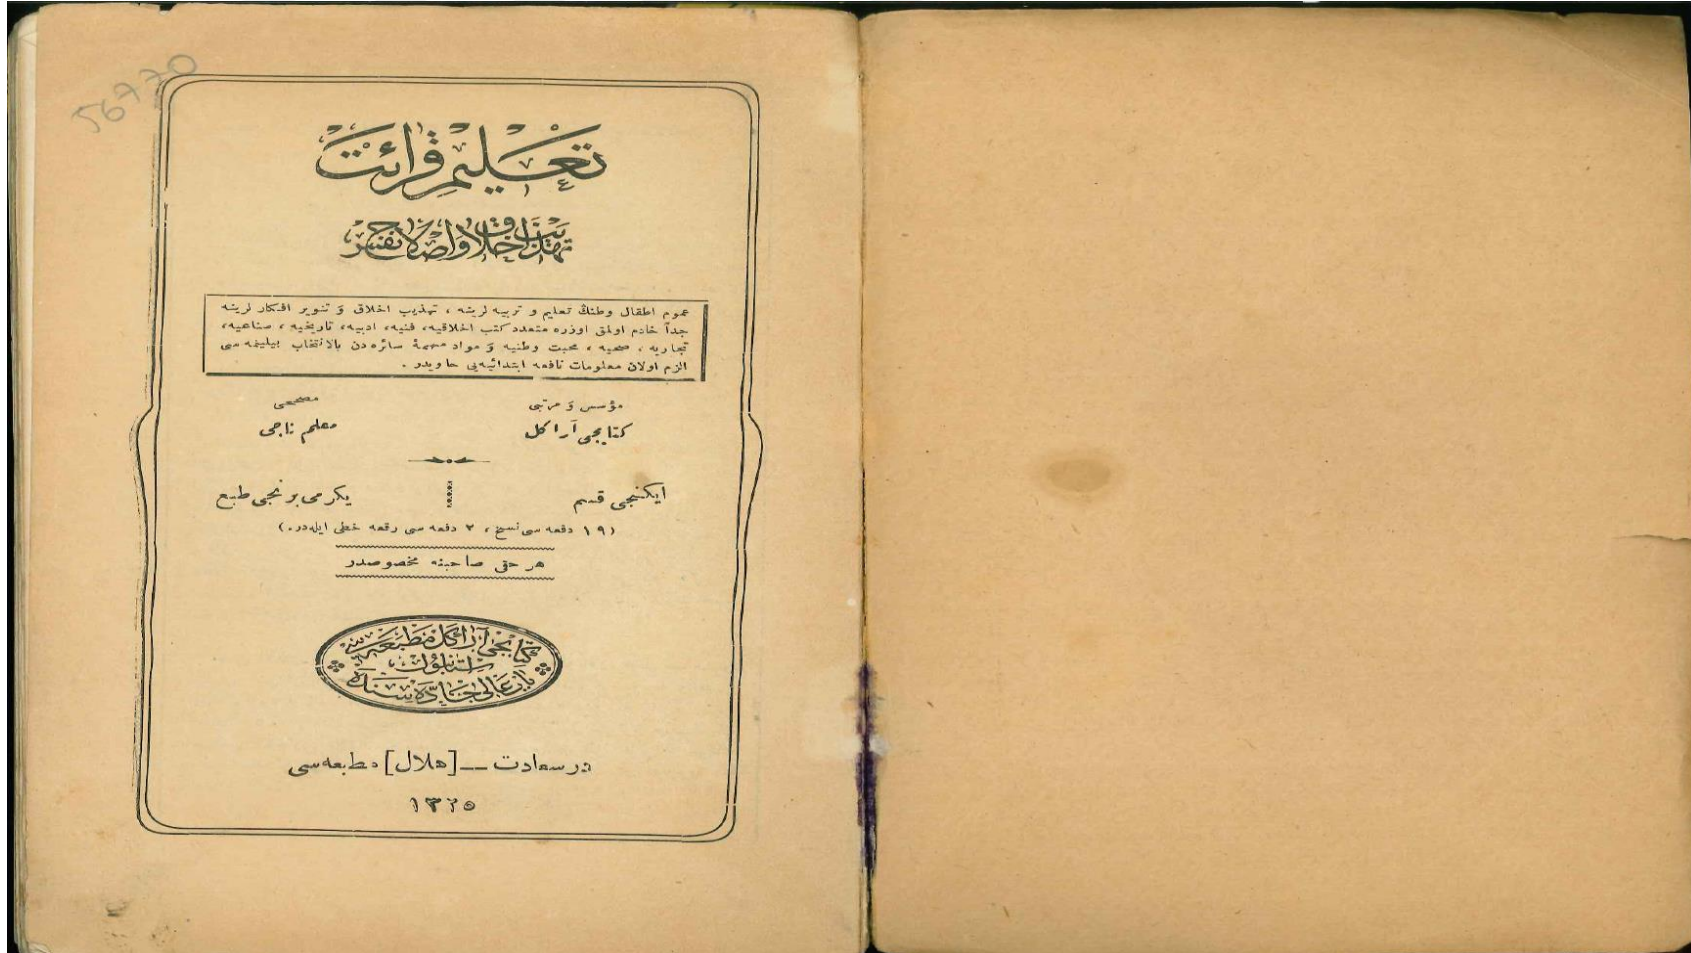 56770
تعليم قرائت
تهذيب اخلاق و اصلاح نفس
عموم اطفال وطنڭ تعليم و تربيه لرينه ، تهذيب اخلاق و تنوير افكار لرينه
جداً خادم اولمق اوزره متعدد كتب اخلاقيه، فنيه، ادبيه، تاريخيه ، صناعيه،
تجاريه ، صحيه ، محبت وطنيه و مواد مهمهٔ سائره دن بالانتخاب بيلينمه سى
الزم اولان معلومات نافعه ابتدائيه يى حاويدر .
مؤسس و مرتبى
مصححى
كتابجى آراكل
معلم ناجى
ايكنجى قسم
يكرمى برنجى طبع
(١٩ دفعه سى نسخ ، ٢ دفعه سى رقعه خطى ايله در.)
هر حقى صاحبنه مخصوصدر
كتابجى آراكل مطبعه سى
استانبولده
باب عالى جاده سنده
در سعادت — [هلال] مطبعه سى
١٣٢٥